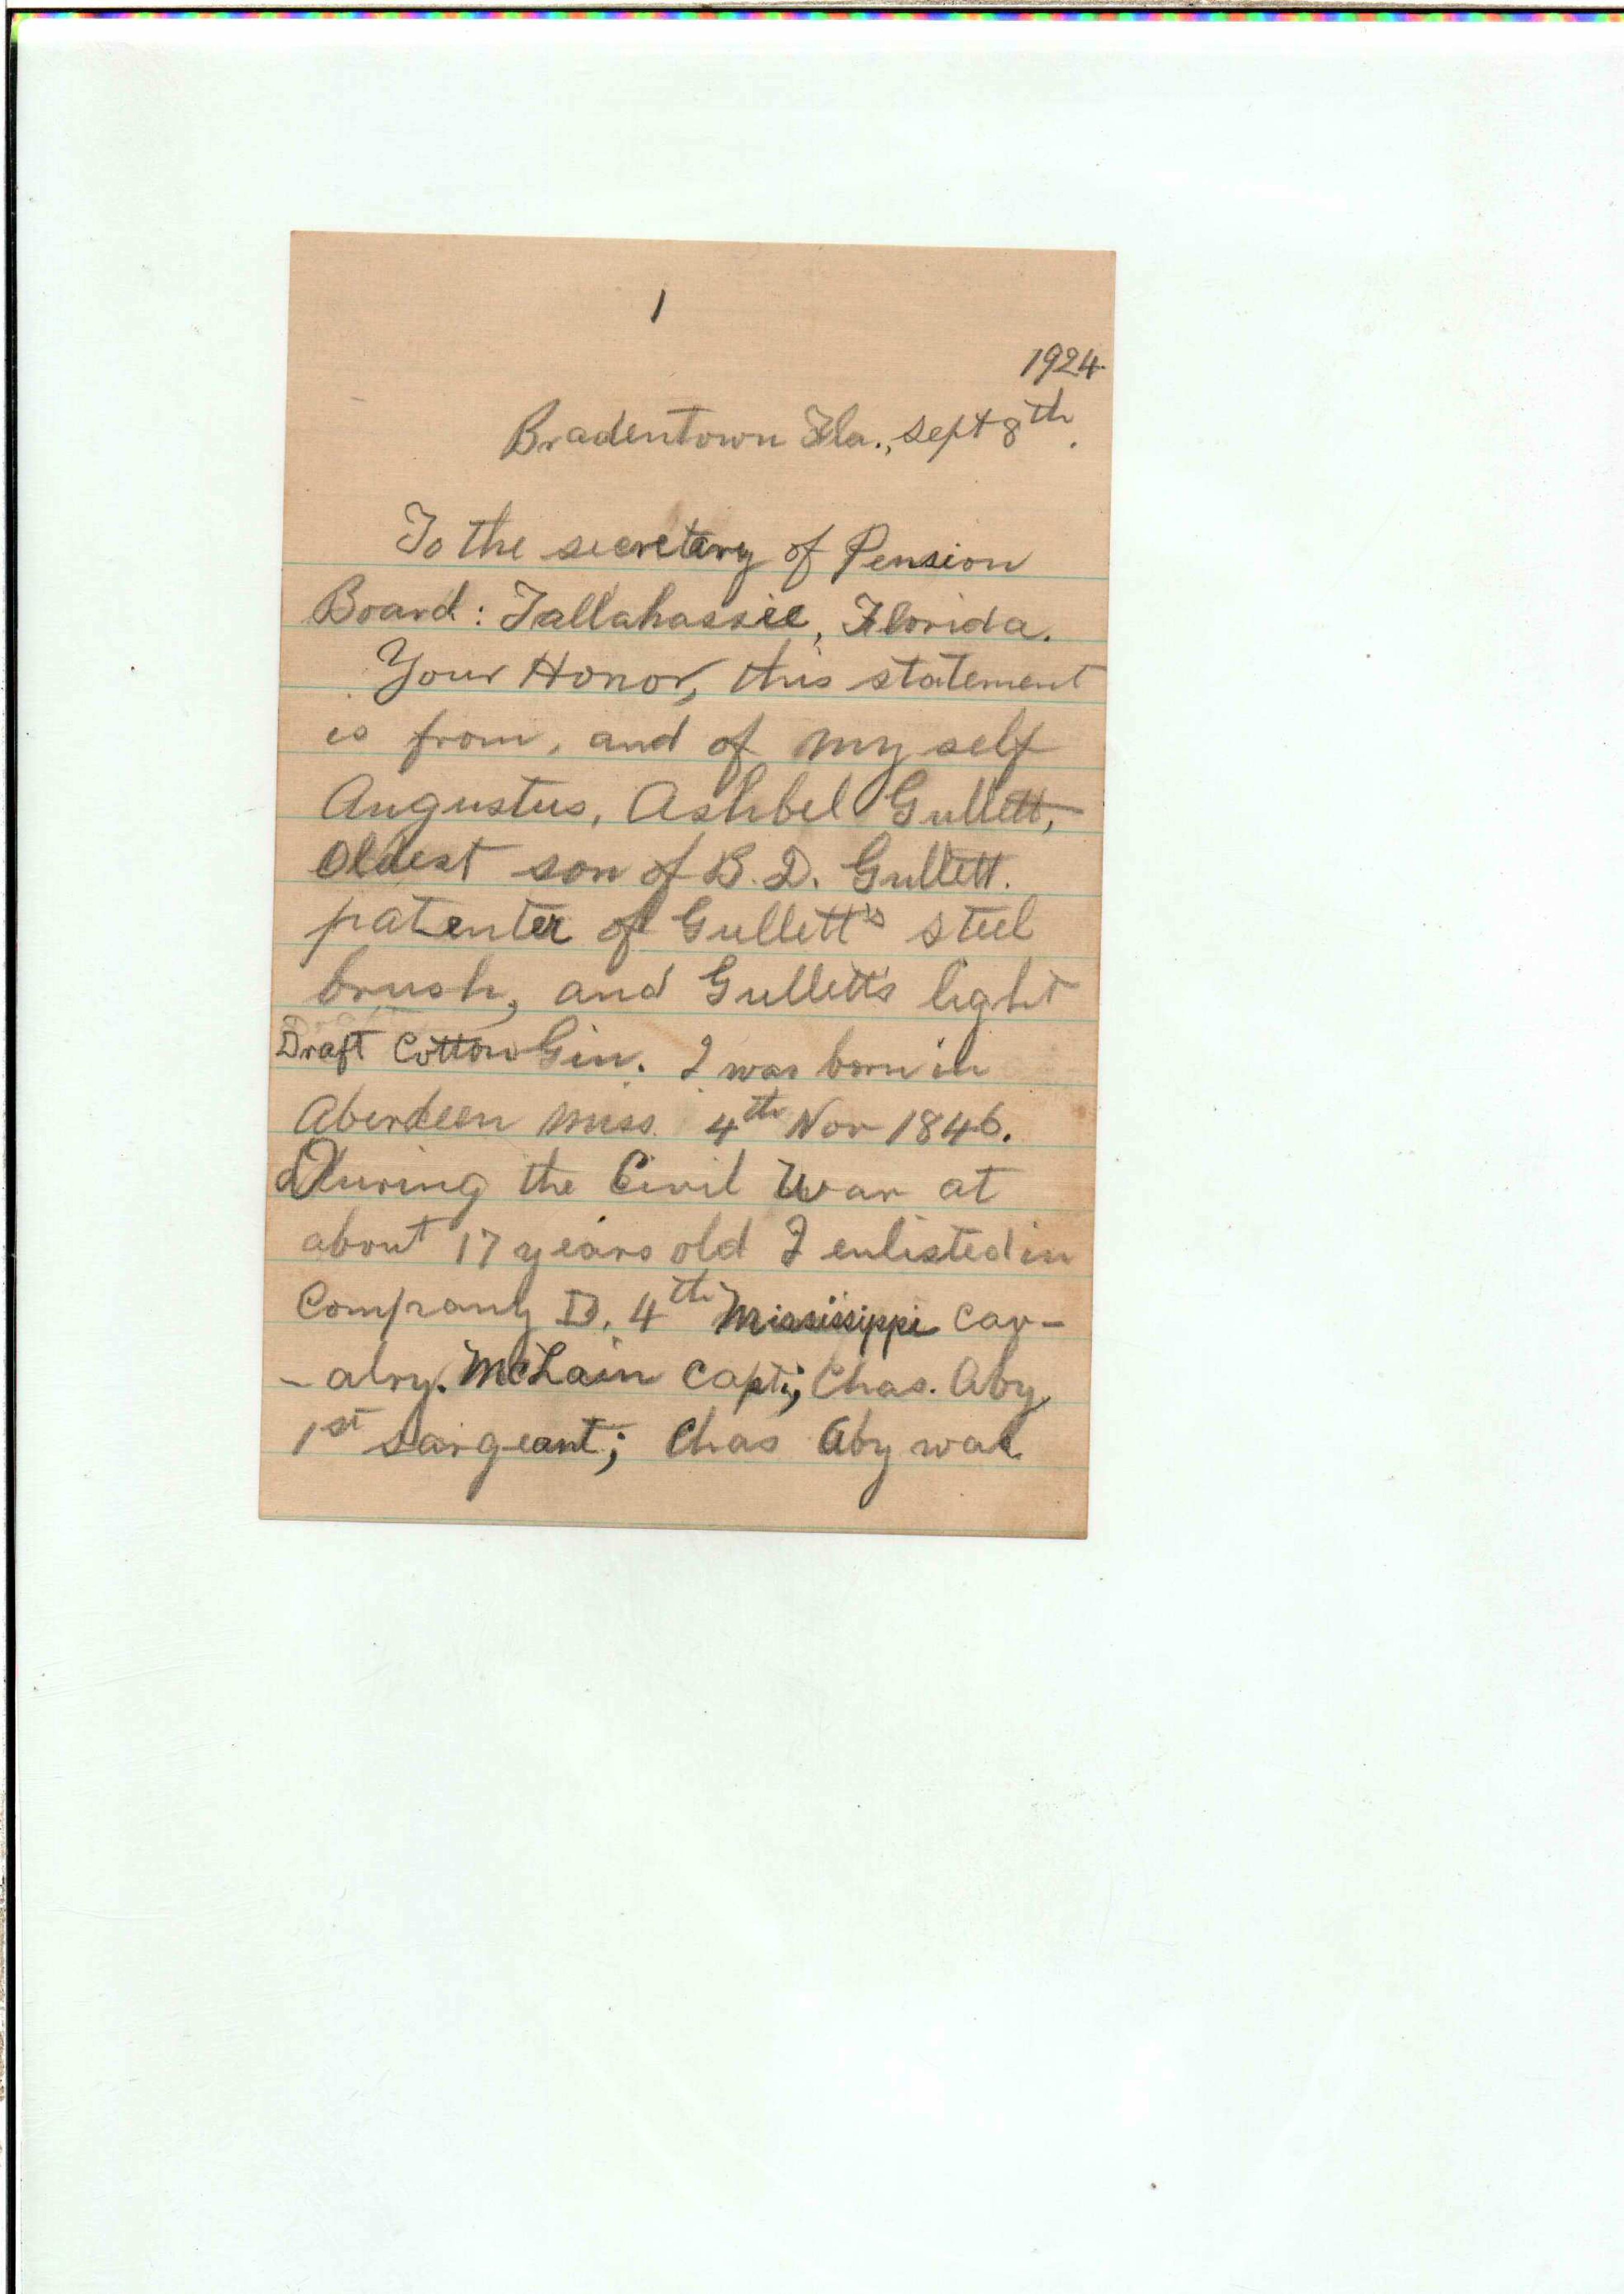 1
1924
Bradentown Fla., Sept 8th.
To the secretary of Pension
Board: Tallahassee, Florida.
Your Honor, this statement
is from, and of my self
Augustus, Ashbel Gullett,
Oldest son of B. D. Gullett.
patenter of Gullett's steel
brush, and Gullett's light
Draft Cotton Gin. I was born in
Aberdeen Miss. 4th Nov 1846.
During the Civil War at
about 17 years old I enlisted in
Company D. 4th Mississippi Cav-
-alry. McLain Capt.; Chas. Aby
1st Sargeant; Chas Aby was